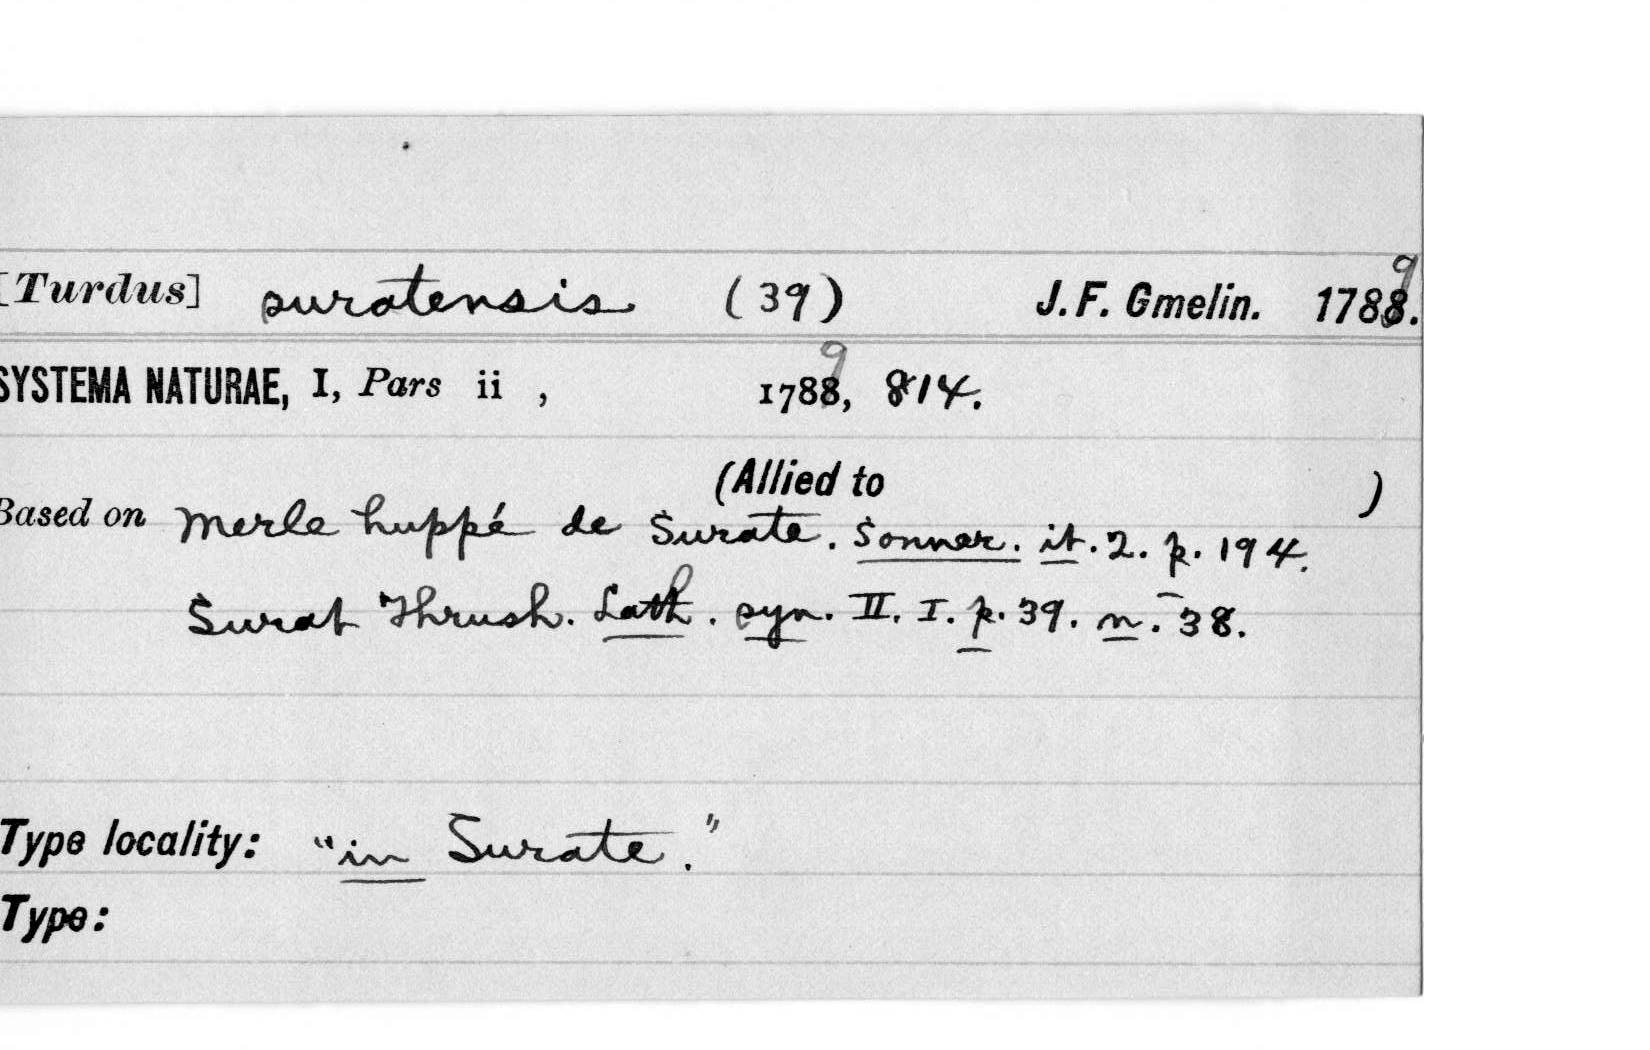 [Turdus] suratensis (39) J. F. Gmelin. 1789.
SYSTEMA NATURAE, I, Pars ii , 1789, 814.
(Allied to )
Based on Merle huppé de Surate. Sonner. it. 2. p. 194.
Surat Thrush. Lath. syn. II. I. p. 39. n. 38.
Type locality: "in Surate."
Type: